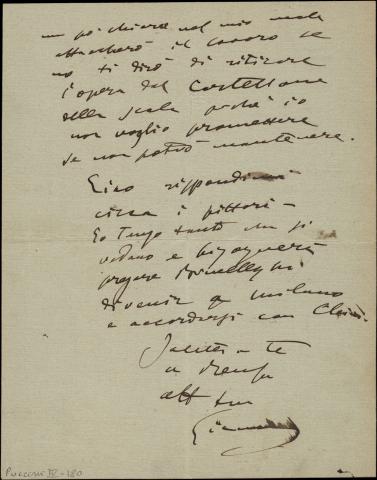 un po' chiaro nel mio male
attaccherò il lavoro se
no ti dirò di ritirare
l'opera dal Cartellone
della Scala perchè io
non voglio promettere
se non potrò mantenere.
Ciao rispondimi
circa i pittori –
Io tengo tanto che si
vedano e bisognerà
pregare
di venir a Milano
e accordarsi con
Saluti a te
a
aff tuo
Giacomo
Puccini IV-180